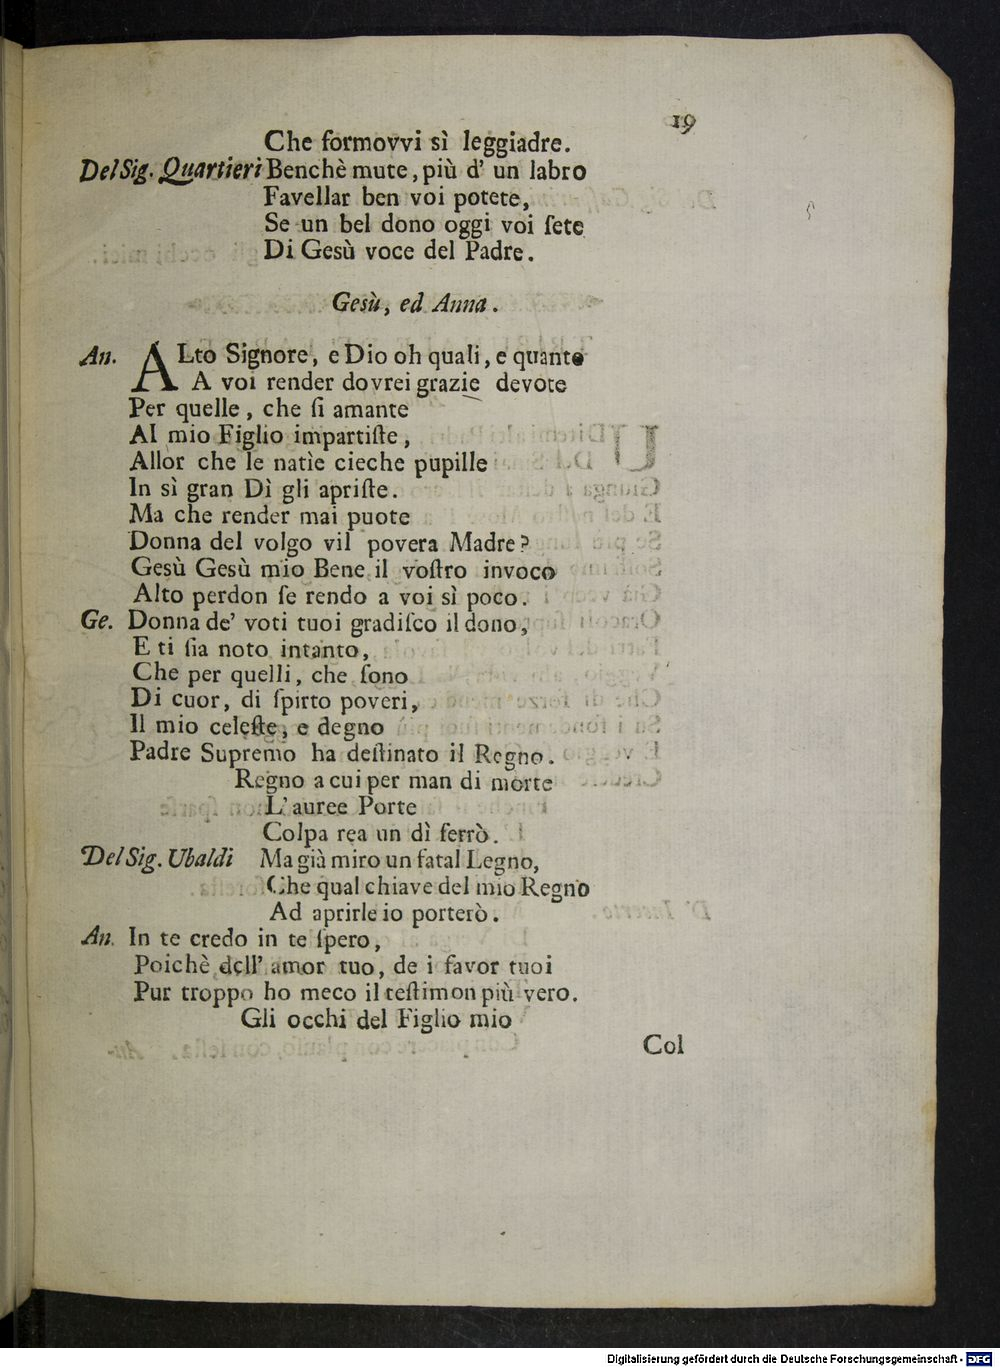 19
Che formovvi sì leggiadre.
Del Sig. Quartieri Benchè mute, più d' un labro
Favellar ben voi potete,
Se un bel dono oggi voi ſete
Di Gesù voce del Padre.
Gesù, ed Anna.
An. ALto Signore, e Dio oh quali, e quante
A voi render dovrei grazie devote
Per quelle, che ſi amante
Al mio Figlio impartiſte,
Allor che le natìe cieche pupille
In sì gran Dì gli apriſte.
Ma che render mai puote
Donna del volgo vil povera Madre?
Gesù Gesù mio Bene il voſtro invoco
Alto perdon ſe rendo a voi sì poco.
Ge. Donna de' voti tuoi gradiſco il dono,
E ti ſia noto intanto,
Che per quelli, che ſono
Di cuor, di ſpirto poveri,
Il mio celeſte, e degno
Padre Supremo ha deſtinato il Regno.
Regno a cui per man di morte
L'auree Porte
Colpa rea un dì ferrò.
Del Sig. Ubaldi Ma già miro un fatal Legno,
Che qual chiave del mio Regno
Ad aprirle io porterò.
An. In te credo in te ſpero,
Poichè dell' amor tuo, de i favor tuoi
Pur troppo ho meco il teſtimon più vero.
Gli occhi del Figlio mio
Col
Digitalisierung gefördert durch die Deutsche Forschungsgemeinschaft - DFG